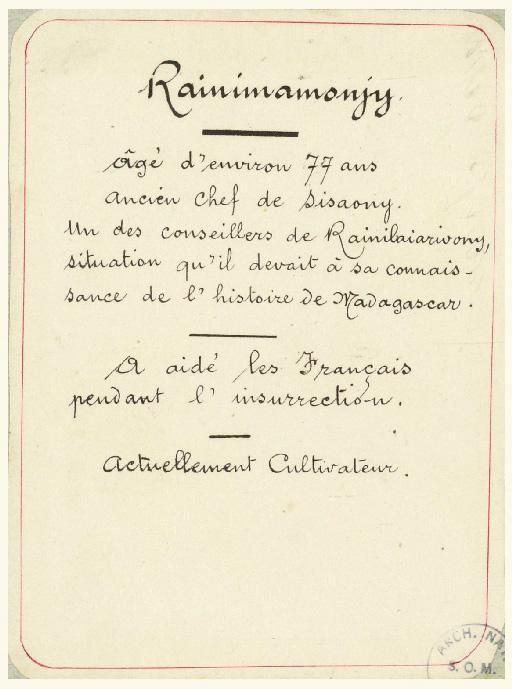 Rainimamonjy.
Âgé d'environ 77 ans
ancien chef de Sisaony.
Un des conseillers de Rainilaiarivony,
situation qu'il devait à sa connais-
sance de l'histoire de Madagascar.
A aidé les Français
pendant l'insurrection.
Actuellement Cultivateur.
ARCH. NA
S. O. M.